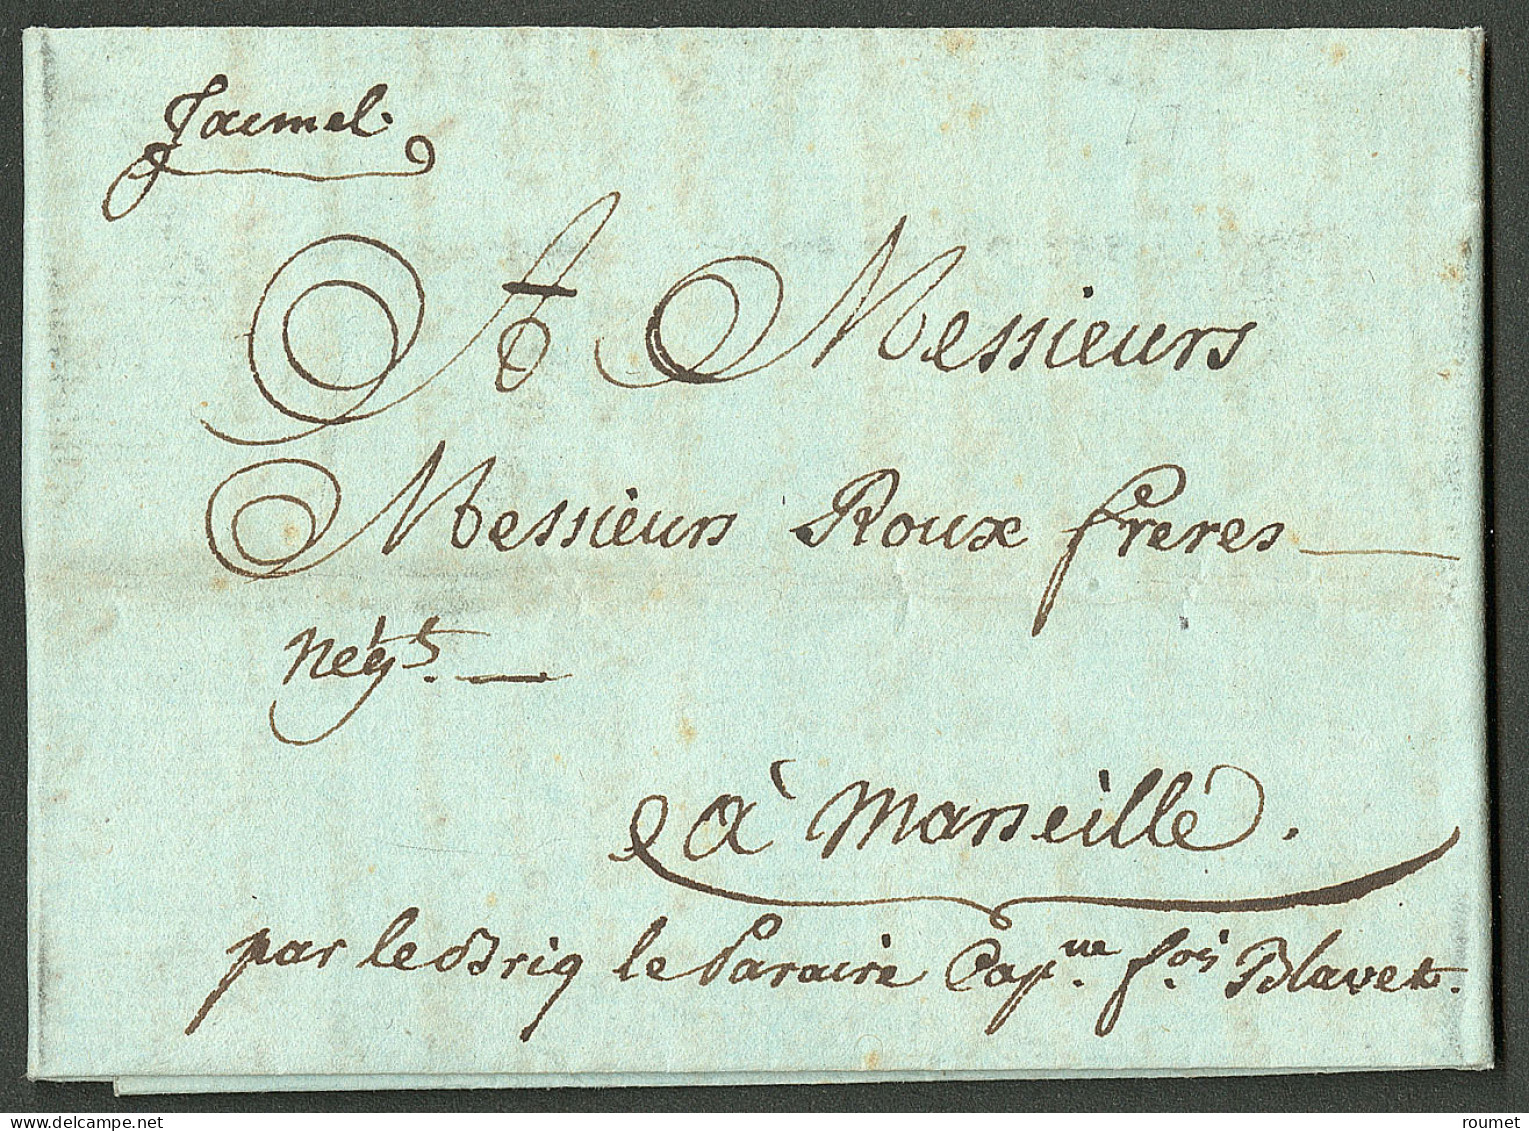 Jacmel.
A Messieurs
Messieurs Roux freres
Négts.
à Marseille.
par le Brig le Saraire Capne. fois Blavet.
roumet